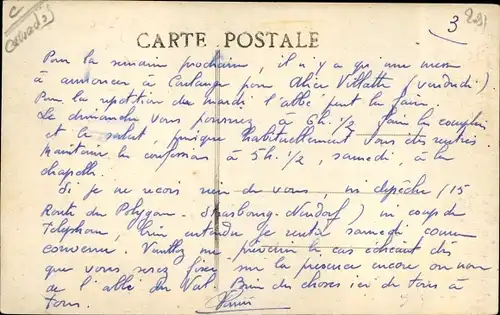 3
CARTE POSTALE
Pour la semaine prochaine, il n'y a qu'une messe
à annoncer à Coulange pour Alice Villatte (vendredi)
Pour la répétition du mardi l'abbé peut la faire.
Le dimanche vous pourrez à 6h. 1/2 faire les complies
et le salut, puisque habituellement vous êtes rentrés.
Maintenir les confessions à 5h. 1/2, samedi, à la
chapelle.
Si je ne reçois rien de vous, ni dépêche (15
Route du Polygone. Strasbourg. Neudorf) ni coup de
téléphone, bien entendu je rentre samedi comme
convenu. Veuillez me prévenir le cas échéant dès
que vous serez fixé sur la présence encore ou non
de l'abbé du Val. Bien des choses ici de tous à
tous.